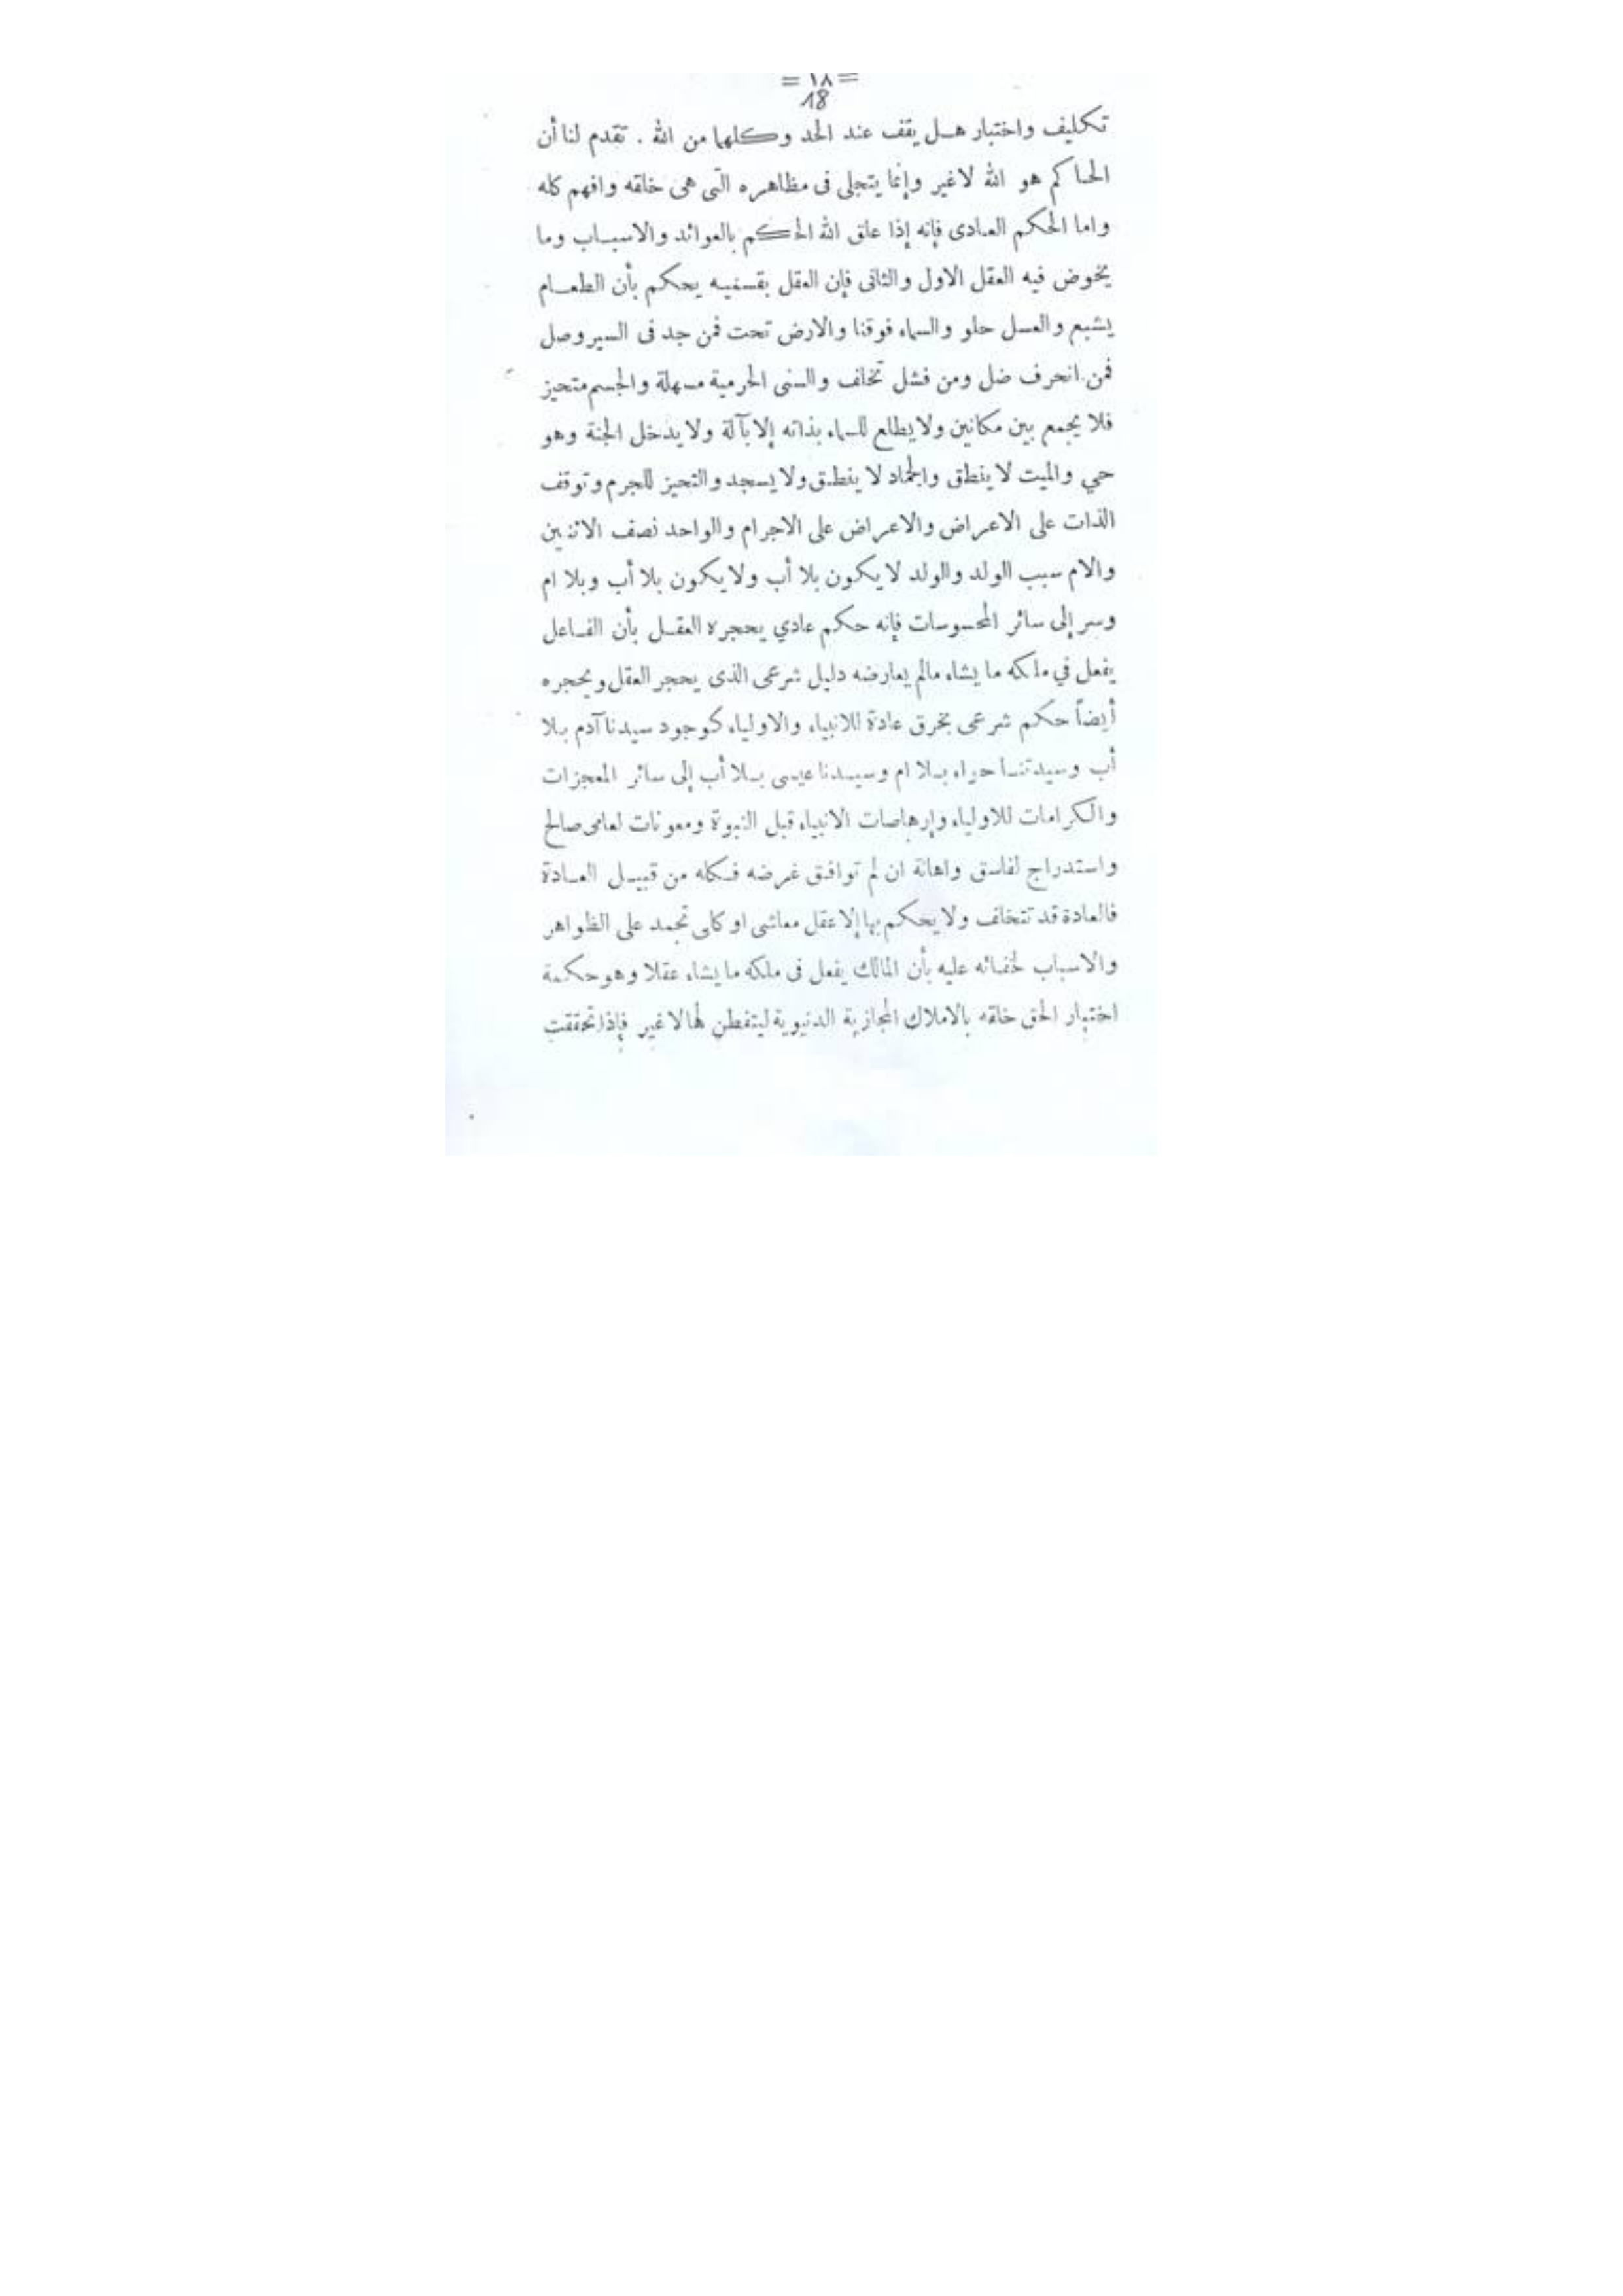 = ١٨ =
18
تكليف واختبار هل يقف عند الحد وكلها من الله . تقدم لنا أن
الحاكم هو الله لاغير وإنما يتجلى فى مظاهره التى هى خلقه وافهم كله
واما الحكم العادى فإنه إذا علق الله الحكم بالعوائد والاسباب وما
يخوض فيه العقل الاول والثانى فإن العقل بقسميه يحكم بأن الطعام
يشبع والعسل حلو والسماء فوقنا والارض تحت فمن جد فى السير وصل
فمن انحرف ضل ومن فشل تخلف والسنى الحرمية مسهلة والجسم متحيز
فلا يجمع بين مكانين ولا يطلع للسماء بذاته إلا بآلة ولا يدخل الجنة وهو
حي والميت لا ينطق والجماد لا ينطق ولا يسجد والتحيز للجرم وتوقف
الذات على الاعراض والاعراض على الاجرام والواحد نصف الاثنين
والام سبب الولد والولد لا يكون بلا أب ولا يكون بلا أب وبلا ام
وسر إلى سائر المحسوسات فإنه حكم عادي يحجره العقل بأن الفاعل
يفعل في ملكه ما يشاء مالم يعارضه دليل شرعى الذى يحجر العقل ويحجره
أيضاً حكم شرعى بخرق عادة للانبياء والاولياء كوجود سيدنا آدم بلا
أب وسيدتنا حواء بلا ام وسيدنا عيسى بلا أب إلى سائر المعجزات
والكرامات للاولياء وإرهاصات الانبياء قبل النبوة ومعونات لعامى صالح
واستدراج لفاسق واهانة ان لم توافق غرضه فكله من قبيل العادة
فالعادة قد تتخلف ولا يحكم بها إلا عقل معاشى او كلى تجمد على الظواهر
والاسباب لخفائه عليه بأن المالك يفعل فى ملكه ما يشاء عقلا وهو حكمة
اختبار الحق خلقه بالاملاك المجازية الدنيوية ليتفطن لها لا غير فإذا تحققت